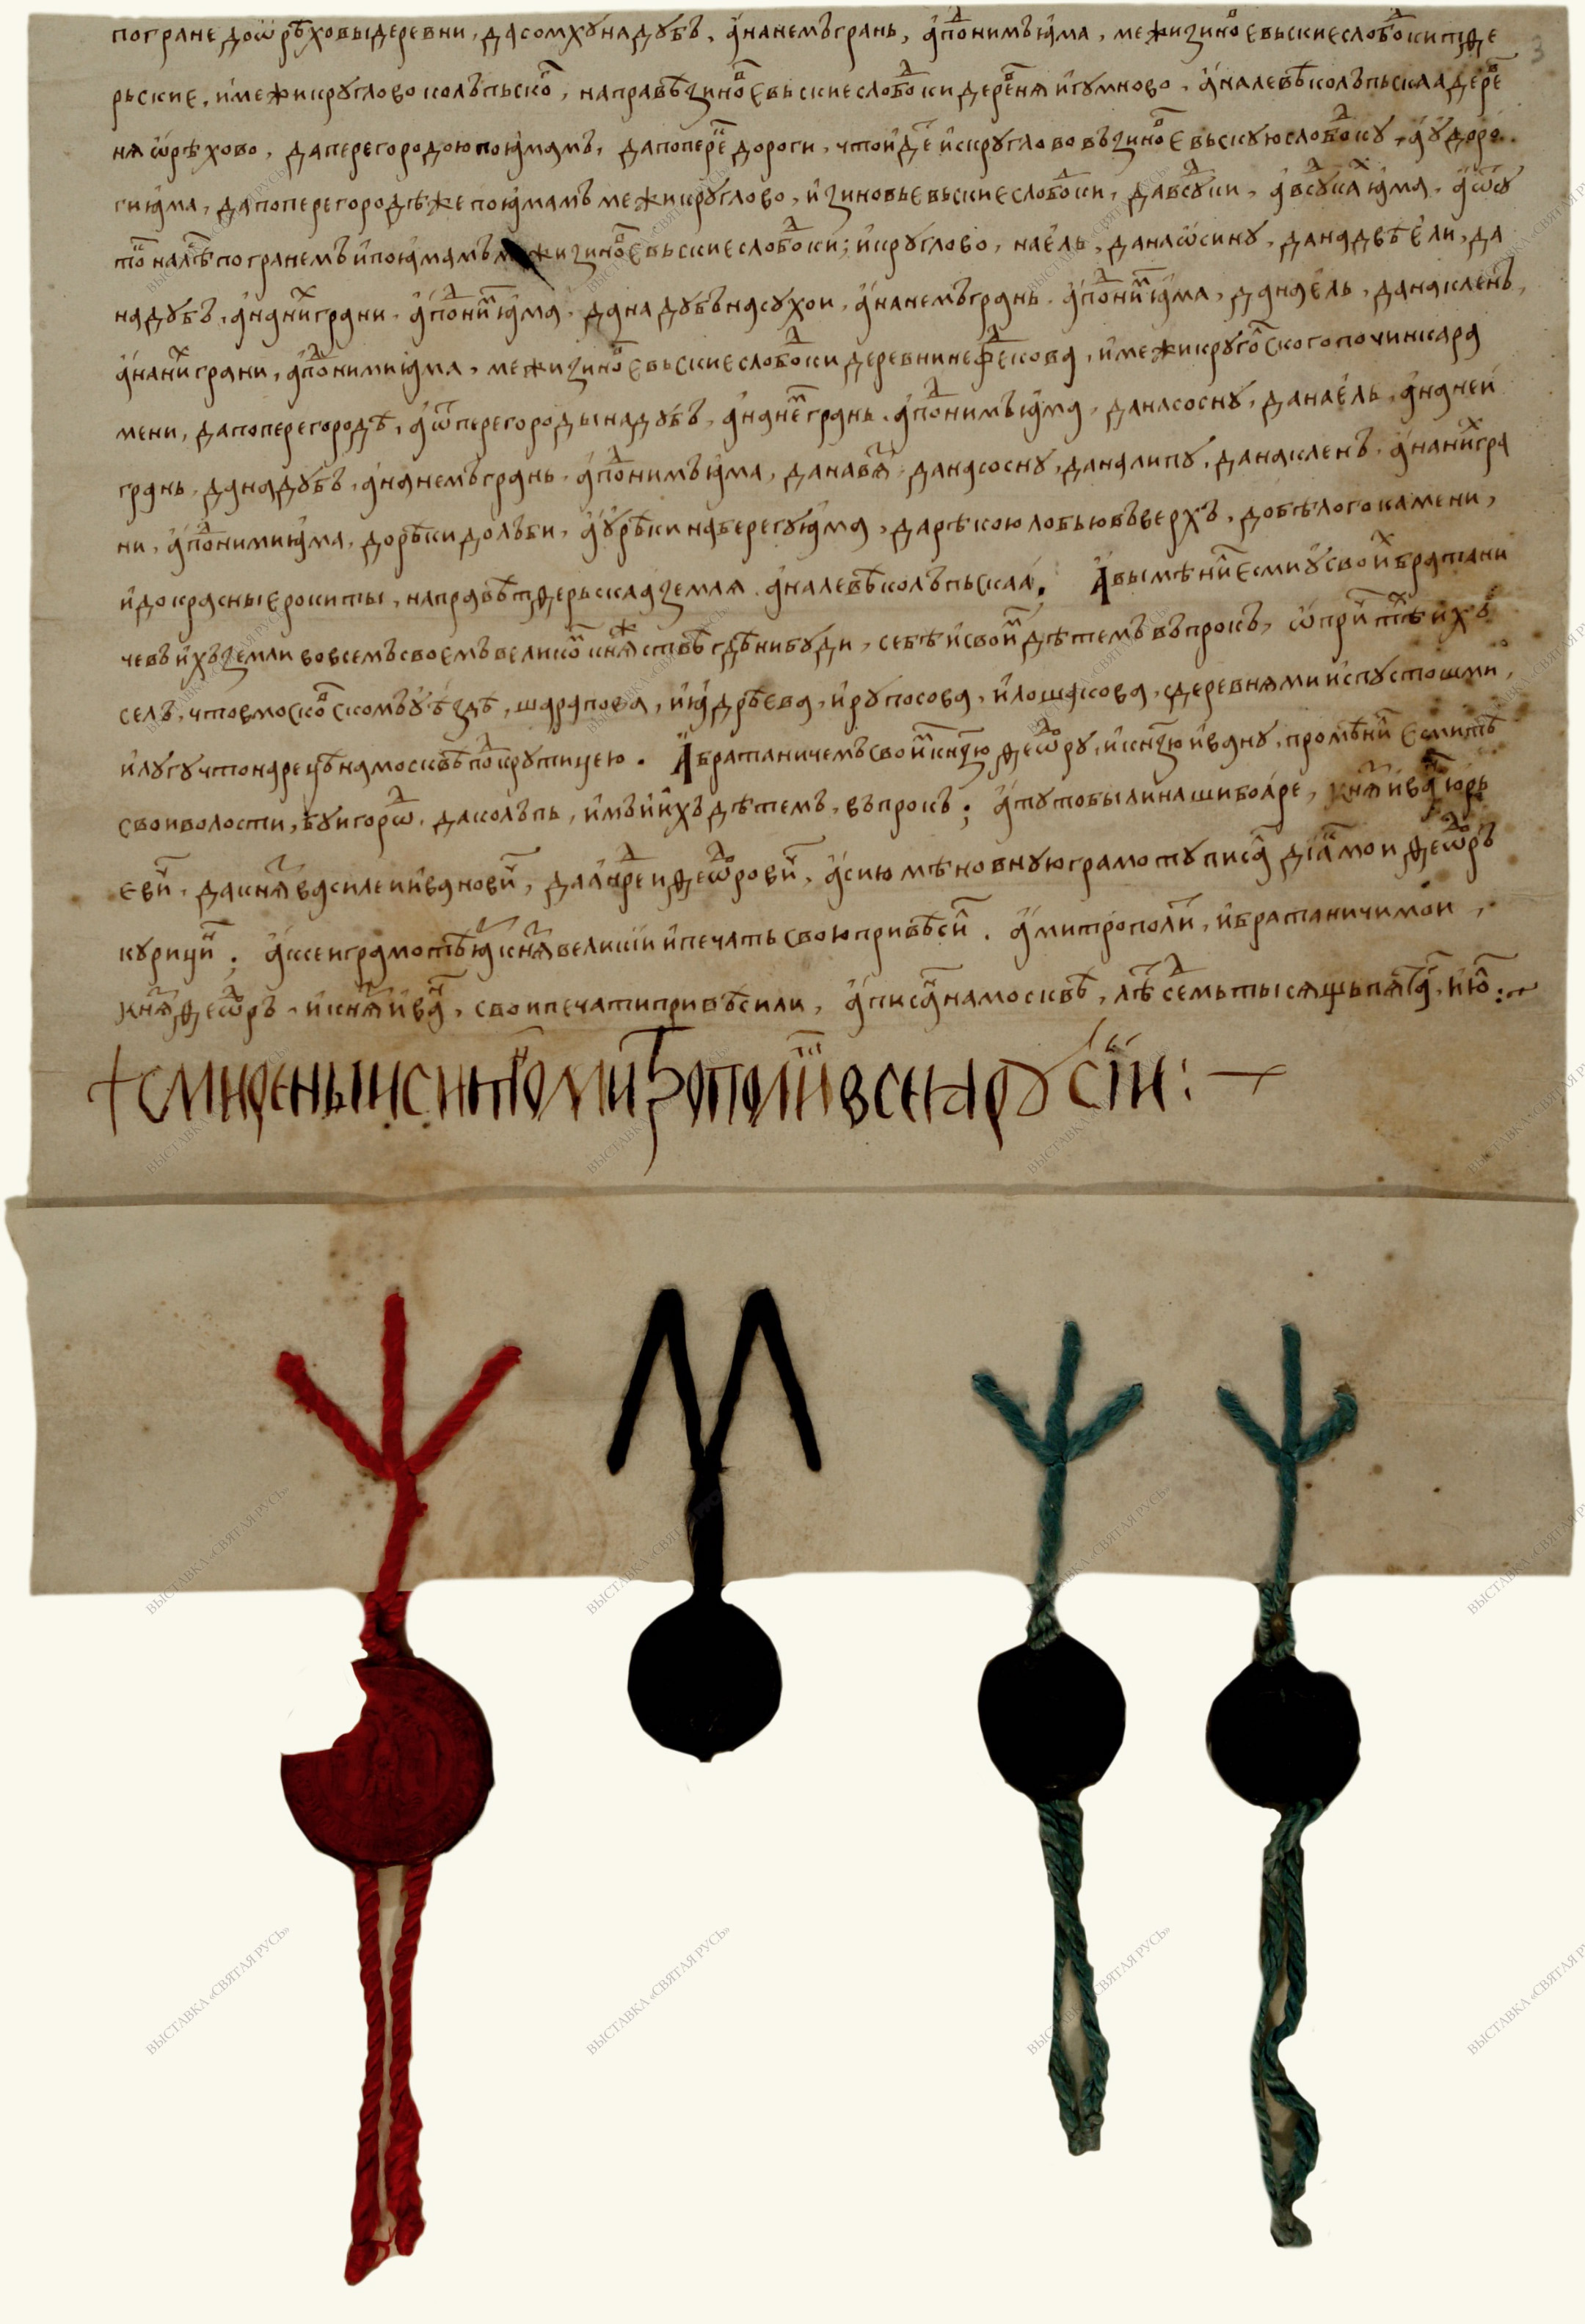 погране доѡрѣховы деревни, да сомху на дубъ, а на немъ грань, а по̑д нимъ ꙗма, межи зинов̑евьские слобод̑ки тѳе
рьские, и межи круглово колъпьског̑о, на правѣ зинов̑евьские слобод̑ки дерев̑ня игумново, а на левѣ колъпьскаа дерев̑
ня ѡрѣхово, да перегородою по ꙗмамъ, да попере̑к дороги, что идет̑ ис круглово въ зинов̑евьскую слобод̑ку, а у доро
ги ꙗма, да по перегородѣ же по ꙗмамъ межи круглово, и зиновьевьские слобод̑ки, да в суки, а в суках̑ ꙗма, а ѿ су
ков̑ налѣ по гранемъ и по ꙗмамъ межи зинов̑евьские слобод̑ки, и круглово, на ель, да на ѡсину, да на двѣ ели, да
на дубъ, а на них̑ грани, а под̑ ними ꙗма, да на дубъ на сухои, а на немъ грань, а под̑ ним̑ ꙗма, да на ель, да на кленъ,
а на них̑ грани, а под̑ ними ꙗма, межи зинов̑евьские слобод̑ки деревни неѳедкова, и межи круговског̑о починка ра
мени, да по перегородѣ, а ѿ перегороды на дубъ, а на нем̑ грань, а под̑ нимъ ꙗма, да на сосну, да на ель, а на неи
грань, да на дубъ, а на немъ грань, а под̑ нимъ ꙗма, да на вяз̑, да на сосну, да на липу, да на кленъ, а на них̑ гра
ни, а под̑ ними ꙗма, до рѣки до лъби, а у рѣки на берегу ꙗма, да рѣкою лобью въверхъ, до бѣлого камени,
и до красные рокиты, на правѣ тѳерьскаа земля, а на левѣ колъпьскаа. А вымѣнил̑ есми у своих̑ братани
чевъ ихъ земли во всемъ своемъ великом̑ княж̑ствѣ гдѣ ни буди, себѣ и своим̑ дѣтемъ въ прокъ, ѡприч̑ тѣх̑ ихъ
селъ, что в московском̑ъ уѣздѣ, шарапова, и ꙗдрѣева, и рупосова, и лошакова, с деревнями и с пустошми,
и лугу что на рецѣ на москвѣ под̑ крутицею. А братаничемъ своим̑ кнзю ѳеѡд̑ору, и кнзю ивану, променил̑ есми тѣ
свои волости, буигород̑, да колъпь, имъ и ихъ дѣтемъ, въ прокъ; а туто были наши бояре, кня̑з иван̑ юрь
евич̑, да княз̑ василеи иванович̑, да андреи ѳеѡд̑орович̑, а сию мѣновную грамоту писал̑ диак̑ мои ѳеѡд̑оръ
курицин̑. а к сеи грамотѣ ꙗ князь великии и печать свою привѣсил̑. а митрополит̑, и братаничи мои,
княз̑ ѳеѡд̑оръ, и княз̑ иван̑, свои печати привѣсили, а писан̑ на москвѣ, лѣт̑ семь тысящь пятаг̑, июн̑:~
+ смиреныи симон̑ митрополит̑ всеꙗ русїи: —